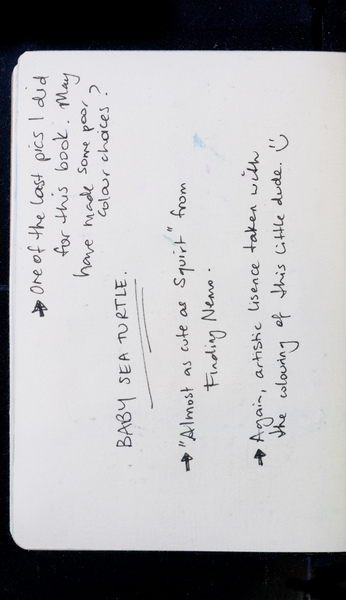 → One of the last pics I did
for this book. May
have made some poor
colour choices?
BABY SEA TURTLE.
→ "Almost as cute as Squirt" from
Finding Nemo.
→ Again, artistic lisence taken with
the colouring of this little dude. :)